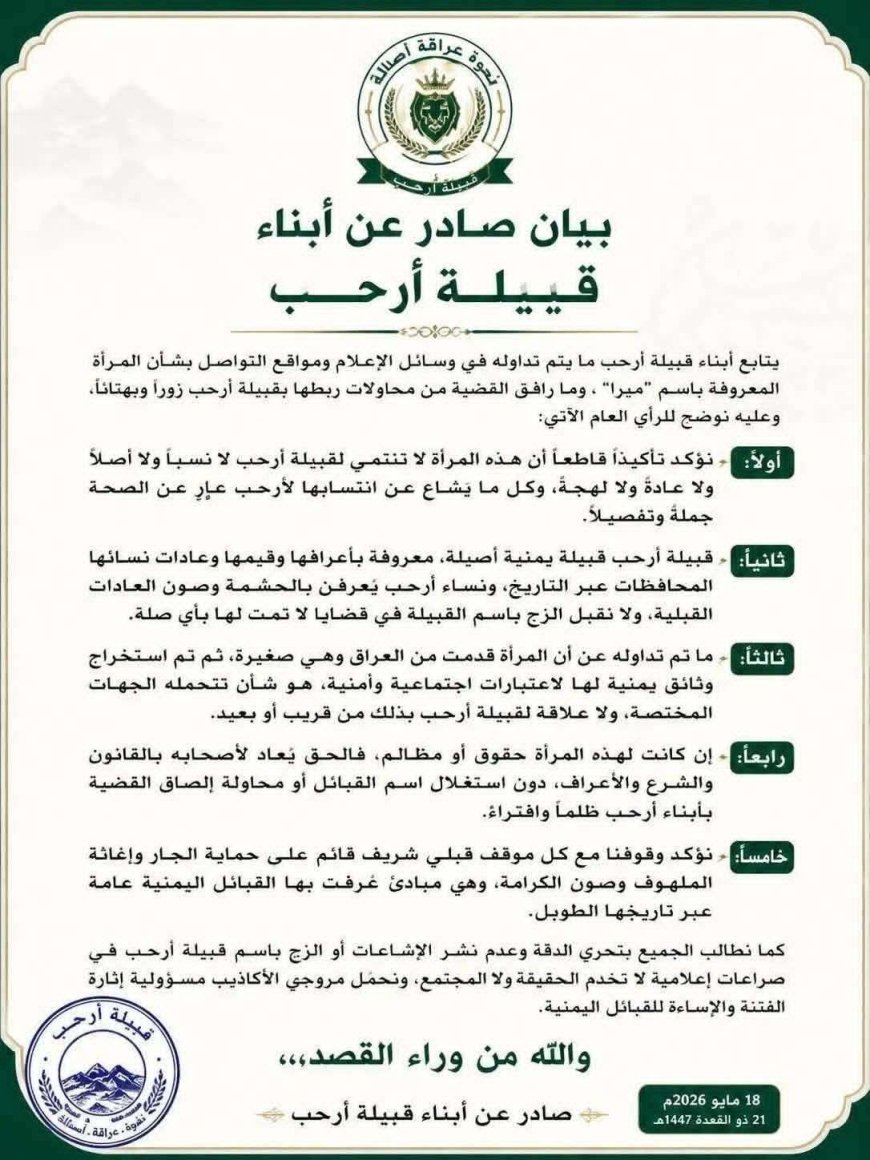 نخوة عراقة أصالة
قبيلة أرحب
بيان صادر عن أبناء
قبيلة أرحب
يتابع أبناء قبيلة أرحب ما يتم تداوله في وسائل الإعلام ومواقع التواصل بشأن المرأة
المعروفة باسم "ميرا" ، وما رافق القضية من محاولات ربطها بقبيلة أرحب زوراً وبهتاناً،
وعليه نوضح للرأي العام الآتي:
أولاً: نؤكد تأكيذاً قاطعاً أن هذه المرأة لا تنتمي لقبيلة أرحب لا نسباً ولا أصلاً
ولا عادةً ولا لهجةً، وكل ما يَشاع عن انتسابها لأرحب عارٍ عن الصحة
جملةً وتفصيلاً.
ثانياً: قبيلة أرحب قبيلة يمنية أصيلة، معروفة بأعرافها وقيمها وعادات نسائها
المحافظات عبر التاريخ، ونساء أرحب يُعرفن بالحشمة وصون العادات
القبلية، ولا نقبل الزج باسم القبيلة في قضايا لا تمت لها بأي صلة.
ثالثاً: ما تم تداوله عن أن المرأة قدمت من العراق وهي صغيرة، ثم تم استخراج
وثائق يمنية لها لاعتبارات اجتماعية وأمنية، هو شأن تتحمله الجهات
المختصة، ولا علاقة لقبيلة أرحب بذلك من قريب أو بعيد.
رابعاً: إن كانت لهذه المرأة حقوق أو مظالم، فالحق يُعاد لأصحابه بالقانون
والشرع والأعراف، دون استغلال اسم القبائل أو محاولة إلصاق القضية
بأبناء أرحب ظلماً وافتراءً.
خامساً: نؤكد وقوفنا مع كل موقف قبلي شريف قائم على حماية الجار وإغاثة
الملهوف وصون الكرامة، وهي مبادئ عُرفت بها القبائل اليمنية عامة
عبر تاريخها الطويل.
كما نطالب الجميع بتحري الدقة وعدم نشر الإشاعات أو الزج باسم قبيلة أرحب في
صراعات إعلامية لا تخدم الحقيقة ولا المجتمع، ونحمّل مروجي الأكاذيب مسؤولية إثارة
الفتنة والإساءة للقبائل اليمنية.
والله من وراء القصد،،،
صادر عن أبناء قبيلة أرحب
18 مايو 2026م
21 ذو القعدة 1447هـ
قبيلة أرحب